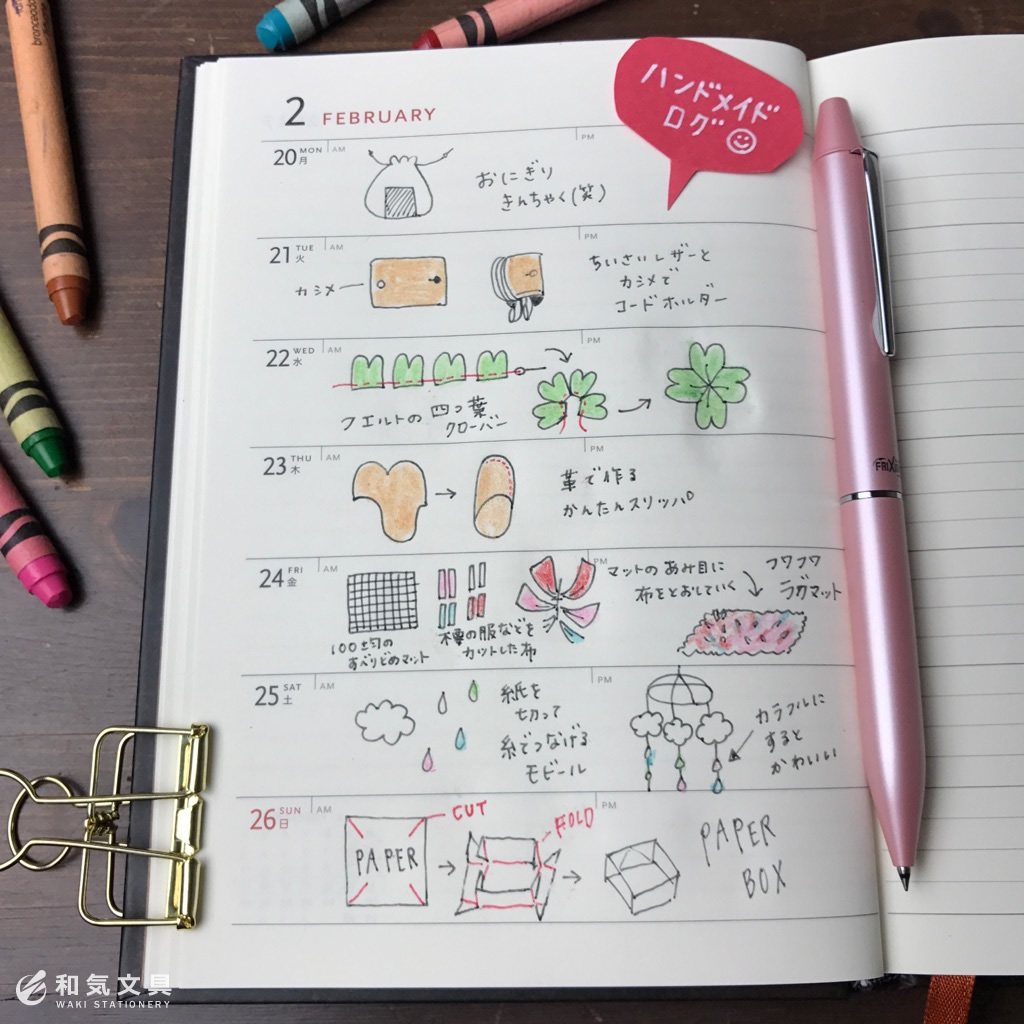 ハンドメイド
ログ
2 FEBRUARY
20 MON 月 AM PM
おにぎり
きんちゃく(笑)
21 TUE 火 AM PM
カシメ
ちいさいレザーと
カシメで
コードホルダー
22 WED 水 AM PM
フエルトの四つ葉
クローバー
23 THU 木 AM PM
革で作る
かんたんスリッパ
24 FRI 金 AM PM
100均の
すべりどめマット
不要の服などを
カットした布
マットのあみ目に
布をとおしていく
フワフワ
ラグマット
25 SAT 土 AM PM
紙を
切って
糸でつなげる
モビール
カラフルに
すると
かわいい
26 SUN 日 AM PM
CUT
PAPER
FOLD
PAPER
BOX
和気文具
WAKI STATIONERY